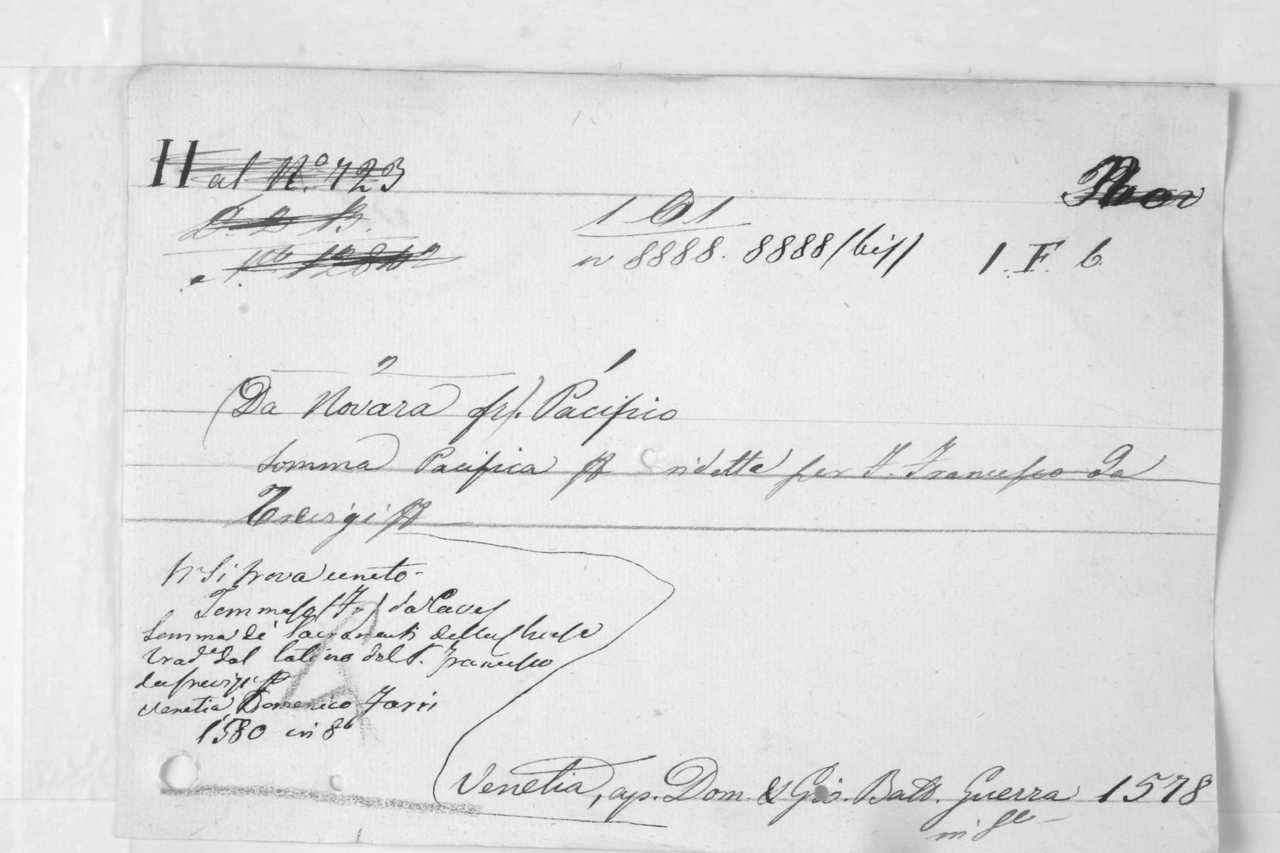 al N.º 723
1 B 1
n 8888. 8888/bis/
1. F. 6.
(Da Novara fr). Pacifico
Somma Pacifica ridotta per F. Francesco Da
Trevigi
Si trova unito
Somma de' Sacramenti della Chiesa
trad.e dal latino del P. Francesco
da Trevigi
Venetia Domenico Farri
1580 in 8º
Venetia, ap. Dom. & Gio. Batt. Guerra 1578
in 8º